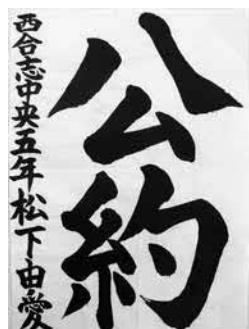 公約
西合志中央五年松下由愛